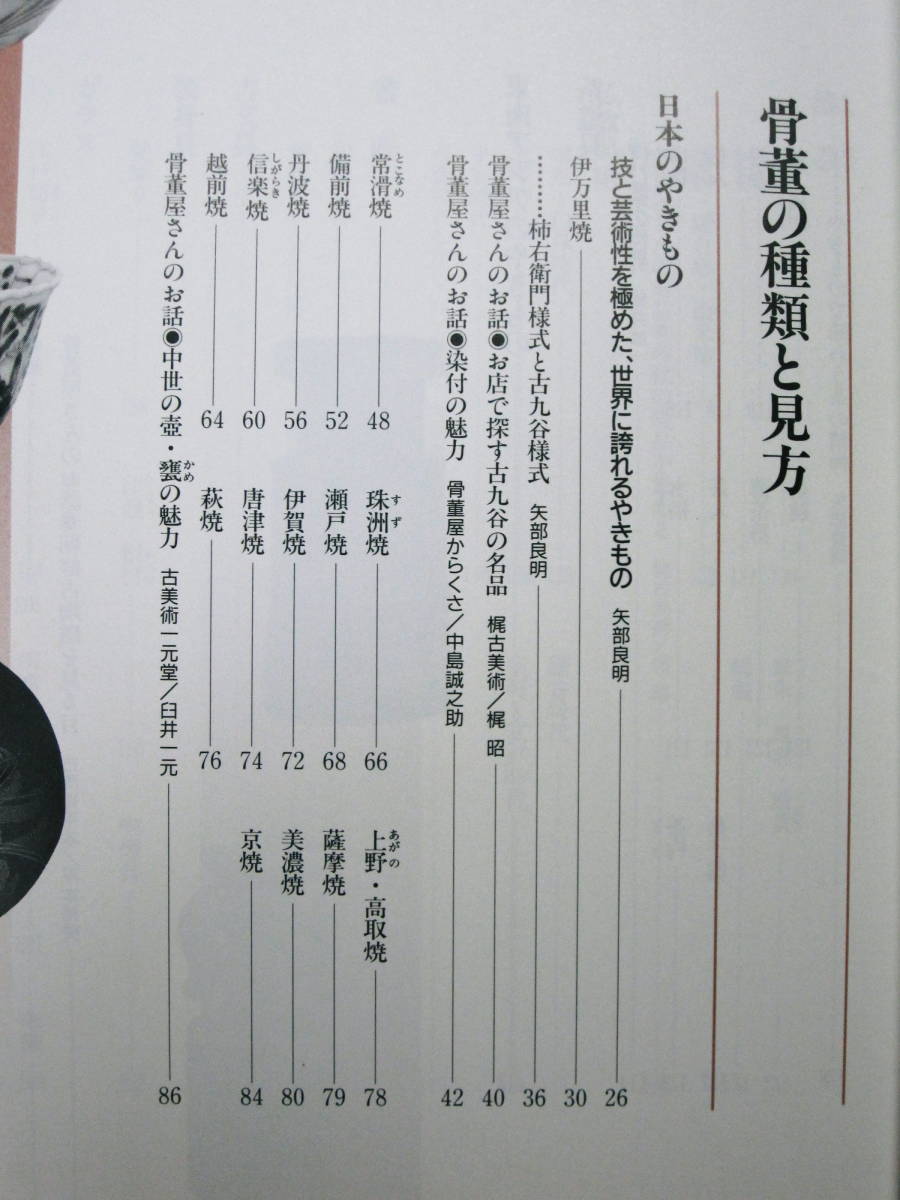 骨董の種類と見方
日本のやきもの
技と芸術性を極めた、世界に誇れるやきもの 矢部良明 26
伊万里焼 30
………柿右衛門様式と古九谷様式 矢部良明 36
骨董屋さんのお話◉お店で探す古九谷の名品 梶古美術/梶 昭 40
骨董屋さんのお話◉染付の魅力 骨董屋からくさ/中島誠之助 42
常滑焼 とこなめ 48
備前焼 52
丹波焼 56
信楽焼 しがらき 60
越前焼 64
珠洲焼 すず 66
瀬戸焼 68
伊賀焼 72
唐津焼 74
萩焼 76
上野・高取焼 あがの 78
薩摩焼 79
美濃焼 80
京焼 84
骨董屋さんのお話◉中世の壺・甕の魅力 かめ 古美術一元堂/臼井一元 86